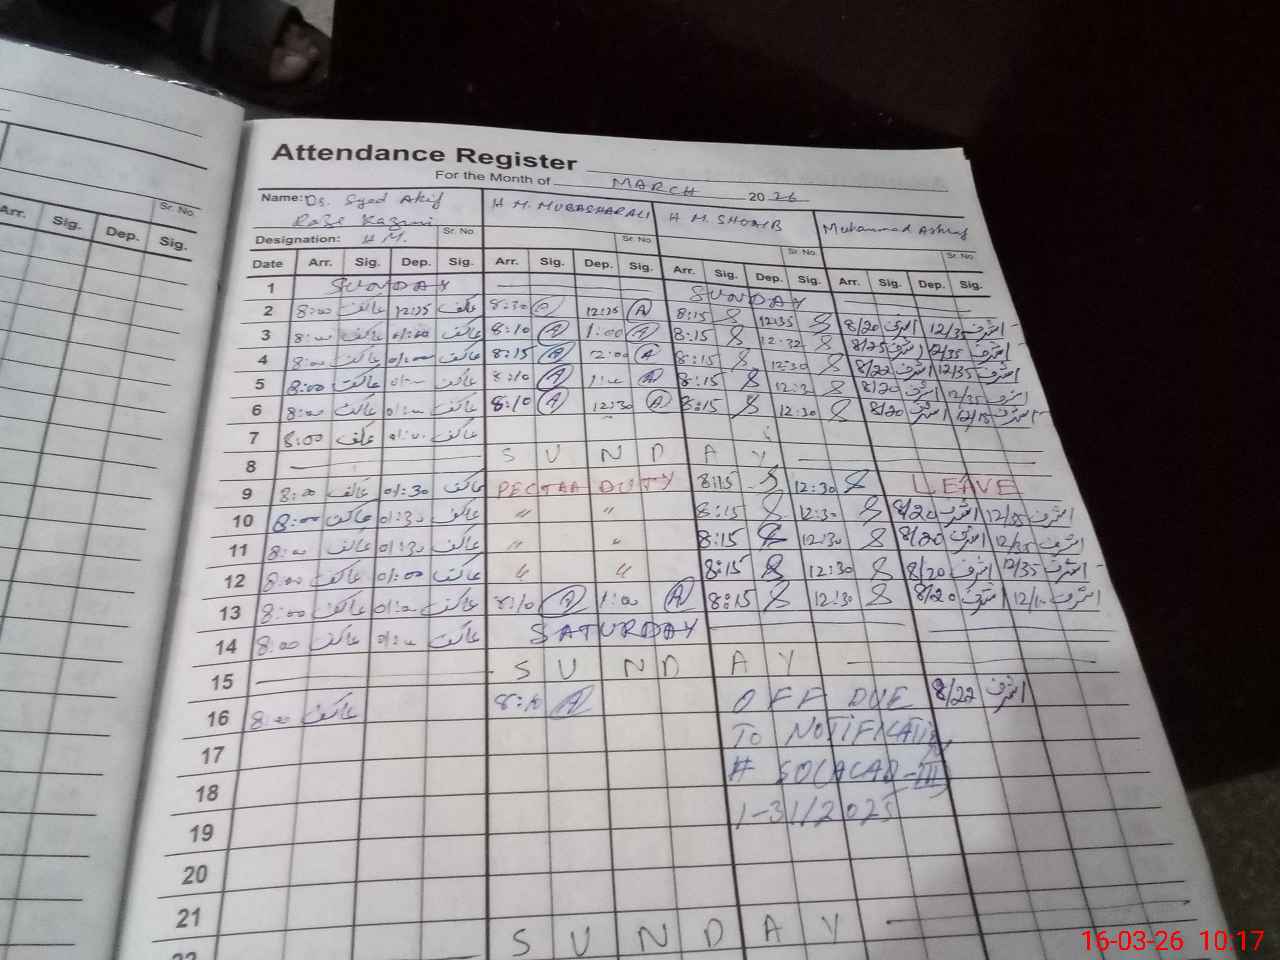 Arr. Sig. Dep. Sig.
Sr. No.
Attendance Register
For the Month of MARCH 2026
Name: Syed Akif H M. MUBASHAR ALI H M. SHOAIB Muhammad Ashraf
Designation: H M. Sr. No. Sr. No. Sr. No. Sr. No.
Date Arr. Sig. Dep. Sig. Arr. Sig. Dep. Sig. Arr. Sig. Dep. Sig. Arr. Sig. Dep. Sig.
1 SUNDAY SUNDAY
2 8:00 عاکف 12:35 عاکف 8:30 A 8:15 12:35 8/20 اشرف 12/35 اشرف
3 8:00 عاکف 01:00 عاکف 8:10 A 1:00 A 8:15 12:32 8/25 اشرف 12/35 اشرف
4 8:00 عاکف 01:00 عاکف 8:15 A 12:00 A 8:15 12:30 8/22 اشرف 12/35 اشرف
5 8:00 عاکف 01:00 عاکف 8:10 A 1:00 A 8:15 8/20 اشرف 12/35 اشرف
6 8:00 عاکف 01:00 عاکف 8:10 A 12:30 A 8:15 12:30 8/20 اشرف 12/15 اشرف
7 8:00 عاکف 01:00 عاکف
8 SUNDAY
9 8:00 عاکف 01:30 عاکف PECTAA DUTY 8:15 12:30 LEAVE
10 8:00 عاکف 01:30 عاکف " " 8:15 12:30 8/20 اشرف 12/35 اشرف
11 8:00 عاکف 01:30 عاکف " " 8:15 12:30 8/20 اشرف 12/35 اشرف
12 8:00 عاکف 01:00 عاکف " " 8:15 12:30 8/20 اشرف 12/35 اشرف
13 8:00 عاکف 01:00 عاکف 8:10 A 1:00 A 8:15 12:30 8/20 اشرف 12/10 اشرف
14 8:00 عاکف 01:00 عاکف SATURDAY
15 SUNDAY
16 8:00 عاکف 8:10 A OFF DUE 8/22 اشرف
17 TO NOTIFICATION
18 # SO(ACAD-III)
19 1-31/2025
20
21
22 SUNDAY
16-03-26 10:17